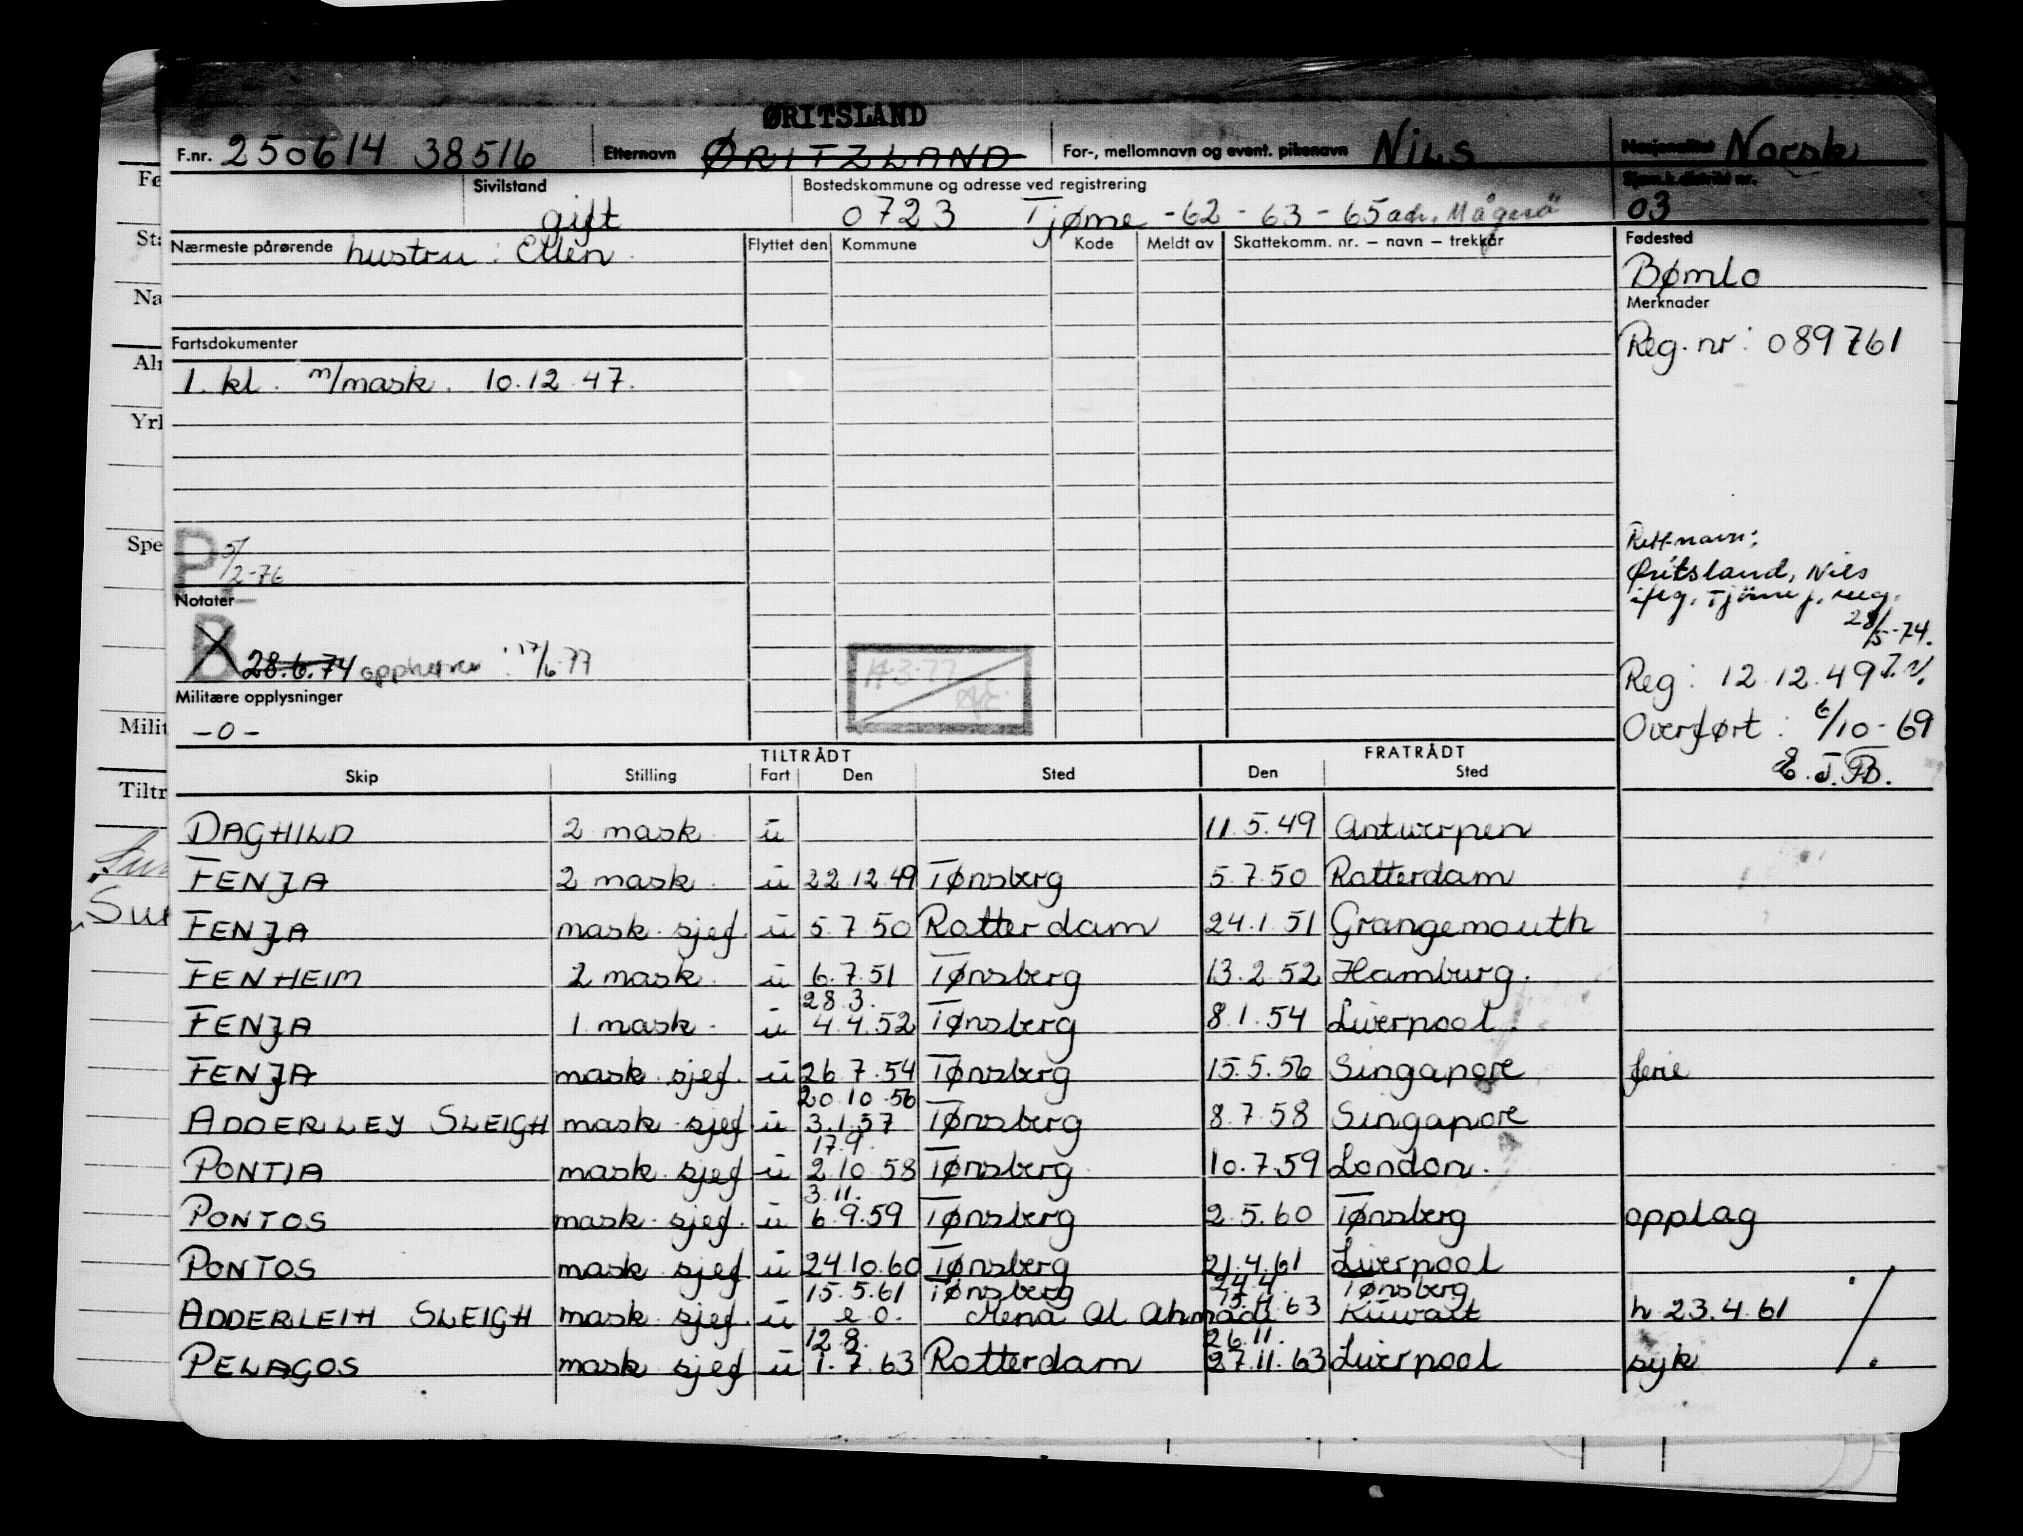 ØRITSLAND
F.nr. 250614 38516 Etternavn ØRITZLAND For-, mellomnavn og event. pikenavn Nils Nasjonalitet Norsk
Sivilstand gift Bostedskommune og adresse ved registrering 0723 Tjøme -62-63-65 adr. Sjøm.k.distrikt nr. 03
Nærmeste pårørende hustru: Ellen Flyttet den Kommune Kode Meldt av Skattekomm. nr. – navn – trekkår Fødested
Bømlo
Merknader
Reg. nr: 089761
Fartsdokumenter
1. kl. m/mask. 10.12.47.
P 5/2-76
Rett navn:
Øritsland, Nils
iføg. Tjøme f. reg.
28/5-74.
Notater
B 28.6.74 opphever: 17/6-77
Reg: 12.12.49
Militære opplysninger
-0-
Overført: 6/10-69
E.J.B.
TILTRÅDT FRATRÅDT
Skip Stilling Fart Den Sted Den Sted
DAGHILD 2 mask u 11.5.49 Antwerpen
FENJA 2 mask. u 22.12.49 Tønsberg 5.7.50 Rotterdam
FENJA mask. sjef. u 5.7.50 Rotterdam 24.1.51 Grangemouth
FENHEIM 2 mask. u 6.7.51 Tønsberg 13.2.52 Hamburg.
28.3.
FENJA 1 mask. u 4.4.52 Tønsberg 8.1.54 Liverpool.
FENJA mask. sjef. u 26.7.54 Tønsberg 15.5.56 Singapore ferie
20.10.56
ADDERLEY SLEIGH mask. sjef u 3.1.57 Tønsberg 8.7.58 Singapore
17.9.
PONTIA mask. sjef u 2.10.58 Tønsberg 10.7.59 London.
3.11.
PONTOS mask. sjef. u 6.9.59 Tønsberg 2.5.60 Tønsberg opplag
PONTOS mask. sjef. u 24.10.60 Tønsberg 21.4.61 Liverpool
15.5.61 Tønsberg 24.4. Tønsberg
ADDERLEIH SLEIGH mask. sjef. u e.o. Mena Al Ahmadi 15.4.63 Kuwait h 23.4.61
12.8. 26.11.
PELAGOS mask. sjef u 1.7.63 Rotterdam 27.11.63 Liverpool syk
Fø
Sta
Na
Alm
Yrk
Spe
Milit
Tiltr